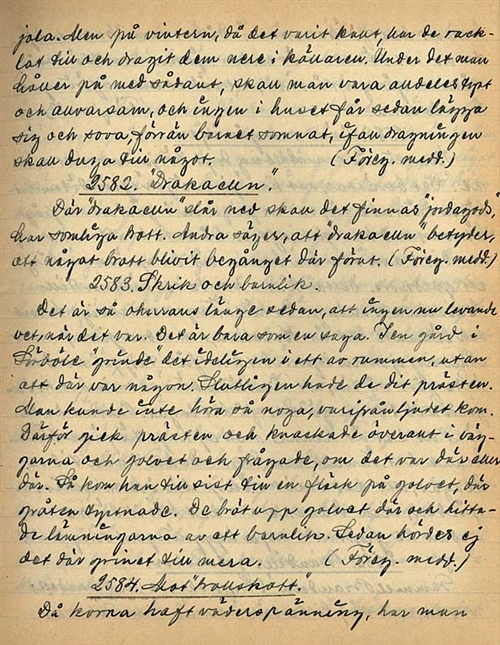 jola. Men på vintern, då det varit kaut, har de rack-
lat till och dragit dem nere i källaren. Under det man
håller på med sådant, skall man vara alldeles tyst
och allvarsam, och ingen i huset får sedan lägga
sig och sova förrän barnet somnat, ifall dragningen
skall duga till något. (Föreg. medd.)
2582. "Drakaelln".
Där "drakaelln" slår ned skall det finnas "jordagods",
har somliga trott. Andra säger, att "drakaelln" betyder,
att något brott blivit begånget där förut. (Föreg. medd.)
2583. Skrik och barnlik.
Det är så oherrans länge sedan, att ingen nu levande
vet, när det var. Det är bara som en saga. I en gård i
Pörböle "grinde" det ideligen i ett av rummen, utan
att där var någon. Slutligen hade de dit prästen.
Man kunde inte höra så noga, varifrån ljudet kom.
Därför gick prästen och knackade överallt i väg-
garna och golvet och frågade, om det var där eller
där. Så kom han till sist till en fläck på golvet, där
gråten tystnade. De bröt upp golvet där och hitta-
de lämningarna av ett barnlik. Sedan hördes ej
det där grinet till mera. (Föreg. medd.)
2584. Mot "trollskott."
Då korna haft väderspänning, har man